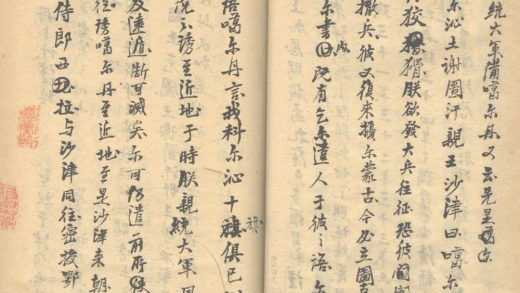 統大軍備噶尔丹又云先是噶尔
尔沁土謝圖汗親王沙津曰噶尔
狡猾朕欲發大兵往征恐彼聞
撤兵彼又復來擾尔蒙古今必立
尔書內有乞尔遣人于彼之語尔
語噶尔丹言我科尔沁十旗俱已
誘至近地于時朕親統大軍
及遠遁斷可滅矣尔可仍遣前所使
往誘噶尔丹至近地至是沙津来朝
侍郎丑拉与沙津同往密授鄂